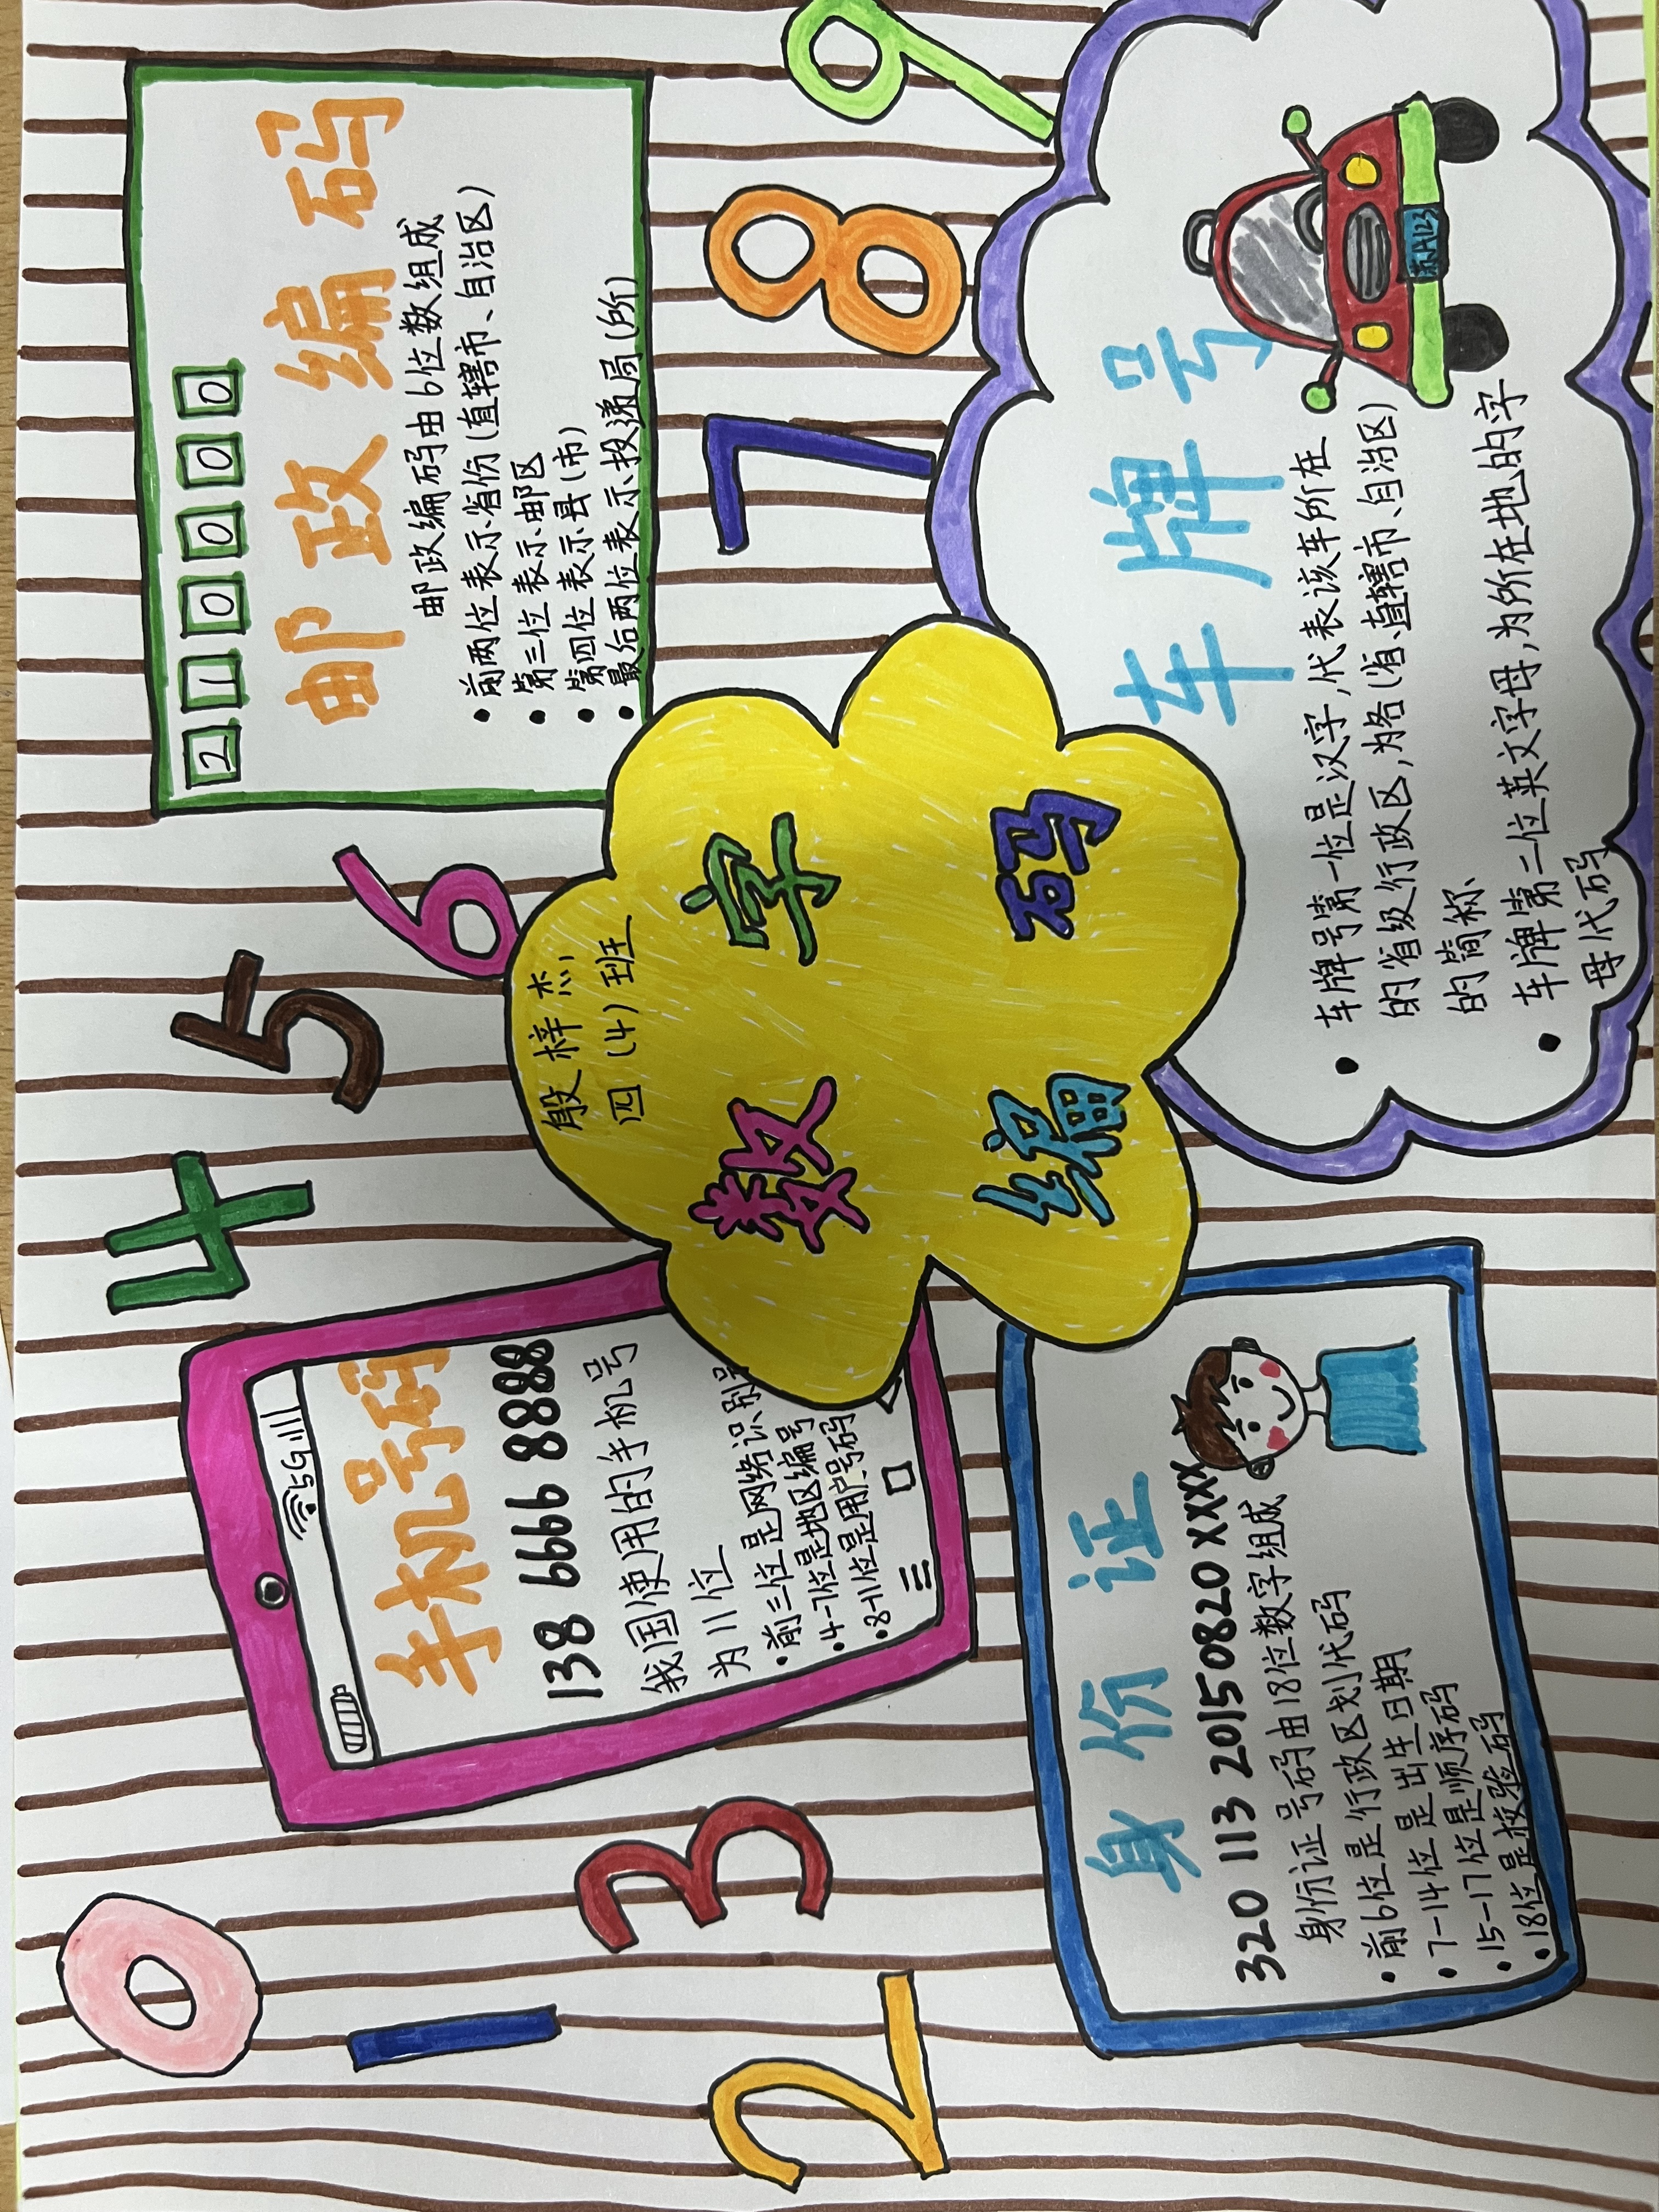 0
1
2
3
4
5
6
7
8
9
5G
手机号码
138 6666 8888
我国使用的手机号
为11位
•前三位是网络识别号
•4-7位是地区编号
•8-11位是用户号码
210000
邮政编码
邮政编码由6位数组成
•前两位表示省份(直辖市、自治区)
•第三位表示邮区
•第四位表示县(市)
•最后两位表示投递局(所)
殷梓杰
四(4)班
数字
编码
身份证
320 113 20150820XXXX
身份证号码由18位数字组成
•前6位是行政区划代码
•7-14位是出生日期
•15-17位是顺序码
•18位是校验码
车牌号
苏A123
•车牌号第一位是汉字,代表该车所在
的省级行政区,为各(省、直辖市、自治区)
的简称
•车牌第二位英文字母,为所在地的字
母代码